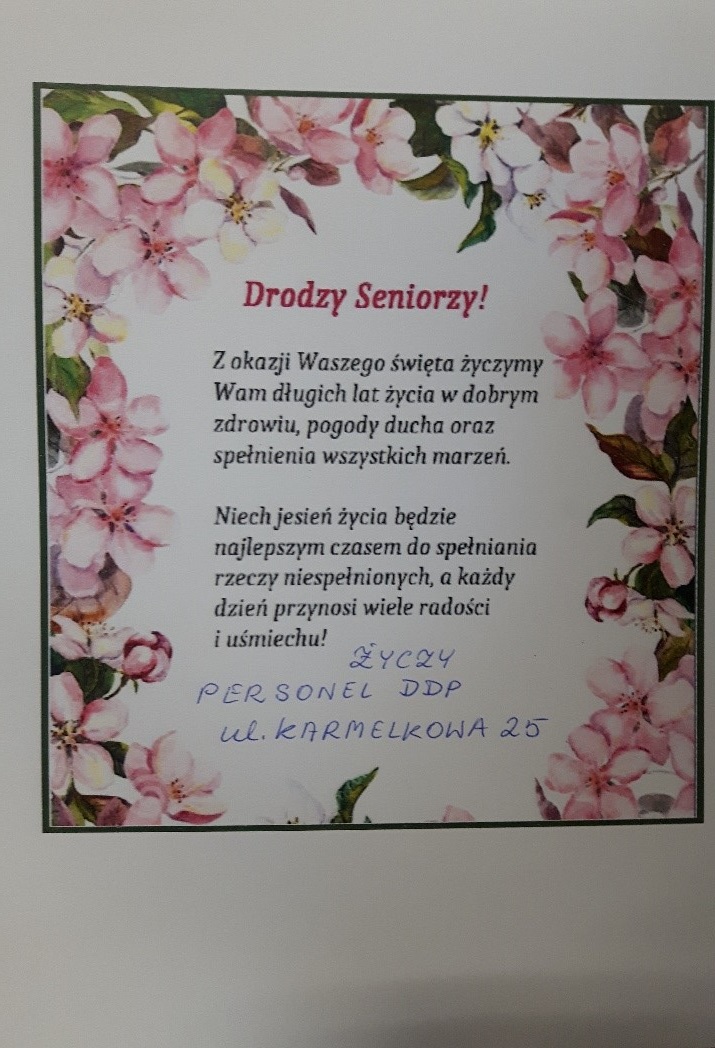 Drodzy Seniorzy!
Z okazji Waszego święta życzymy
Wam długich lat życia w dobrym
zdrowiu, pogody ducha oraz
spełnienia wszystkich marzeń.
Niech jesień życia będzie
najlepszym czasem do spełniania
rzeczy niespełnionych, a każdy
dzień przynosi wiele radości
i uśmiechu!
ŻYCZY
PERSONEL DDP
ul. KARMELKOWA 25